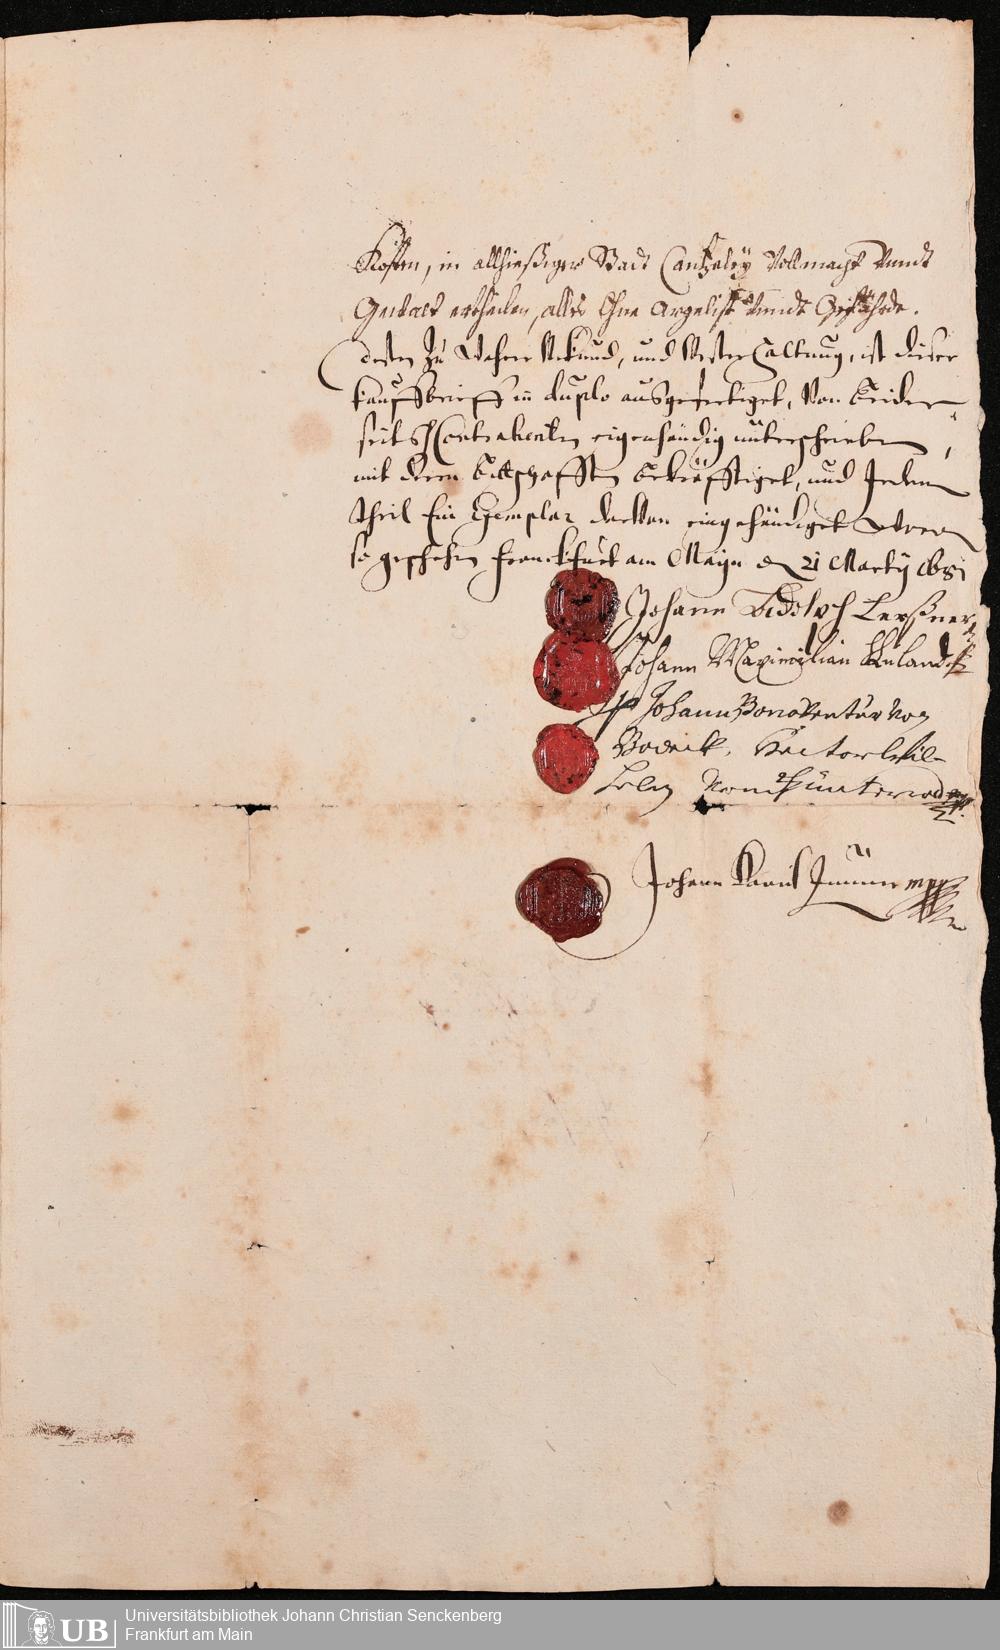 Kosten, in allhießiger Stadt Cantzeley Vollmacht vundt
Gewalt ertheilen, alles Ohne Argelist vnndt Gefährde.
dessen zu wahrer Uhrkund, und Vester Haltung, ist dieser
kauffbrieff in duplo ausgefertiget, Von beider
seits Contrahenten eigenhändig unterschrieben,
mit dero bittschafften bekräfftiget, und Jedem
theil Ein Exemplar davon eingehändiget worden
so geschehen Franckfurt am Mayn d 21 Marty 1681
Johann Ludolph Lersner
Johann Maximilian Kuland
Johann Bonaventur von
Bodeck, Hector Wil-
helm von Günterrod mpp.
Johann David Zunner mpp
Universitätsbibliothek Johann Christian Senckenberg
Frankfurt am Main
UB